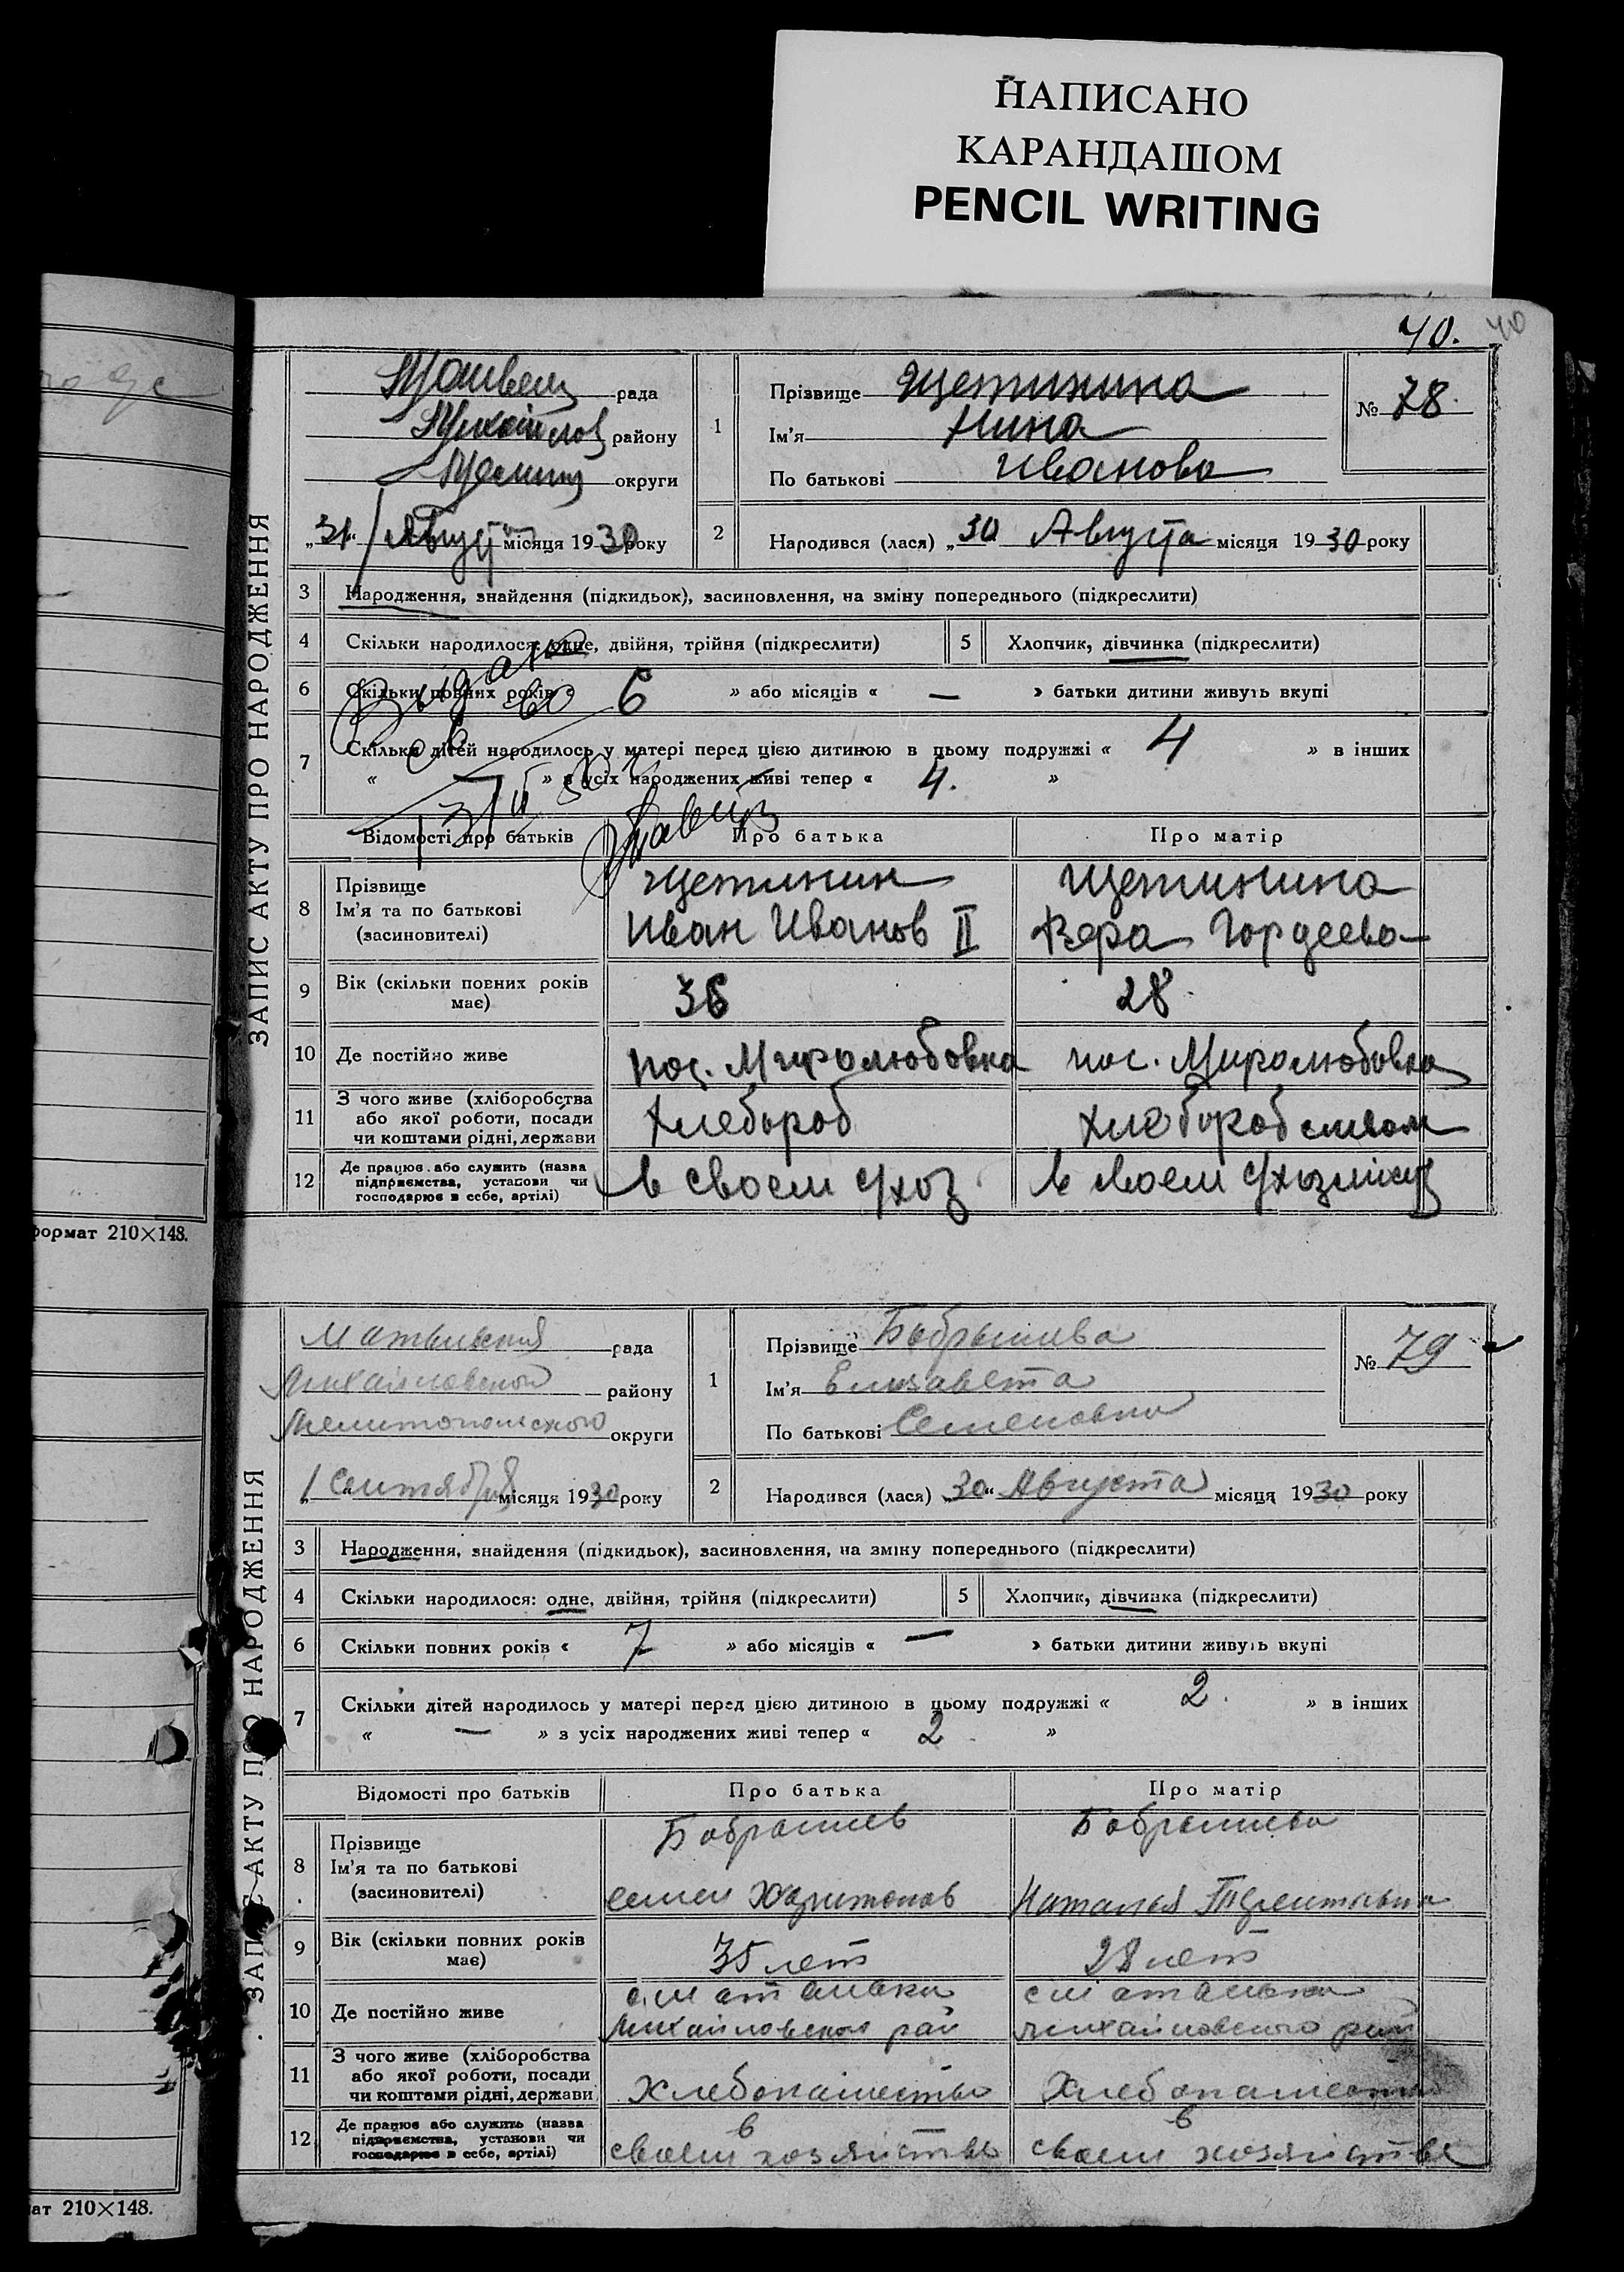 НАПИСАНО
КАРАНДАШОМ
PENCIL WRITING
40. 40
формат 210×148.
ат 210×148.
ЗАПИС АКТУ ПРО НАРОДЖЕННЯ
рада
Михайлов району
округи
„31“ Август місяця 1930 року
1 Прізвище Щетинина
Ім’я Нина
По батькові Иванова
№ 78
2 Народився (лася) „30 Августа місяця 1930 року
3 Народження, знайдення (підкидьок), засиновлення, на зміну попереднього (підкреслити)
4 Скільки народилося: одне, двійня, трійня (підкреслити) 5 Хлопчик, дівчинка (підкреслити)
6 Скільки повних років « 6 » або місяців « — » батьки дитини живуть вкупі
7 Скільки дітей народилось у матері перед цією дитиною в цьому подружжі « 4 » в інших
« — » з усіх народжених живі тепер « 4. »
Выдано
Відомості про батьків Про батька Про матір
8 Прізвище
Ім’я та по батькові
(засиновителі)
Щетинин
Иван Иванов II
Щетинина
Вера Гордеева
9 Вік (скільки повних років має) 36 28
10 Де постійно живе пос. Миролюбовка пос. Миролюбовка
11 З чого живе (хліборобства
або якої роботи, посади
чи коштами рідні, держави
Хлебороб
12 Де працює або служить (назва
підприємства, установи чи
господарює в себе, артілі)
в своем
в своем
ЗАПИС АКТУ ПРО НАРОДЖЕННЯ
рада
Михайловской району
Мелитопольского округи
„1 Сентября місяця 1930 року
1 Прізвище Бобрышева
Ім’я Елизавета
По батькові Семеновна
№ 79
2 Народився (лася) „30“ Августа місяця 1930 року
3 Народження, знайдення (підкидьок), засиновлення, на зміну попереднього (підкреслити)
4 Скільки народилося: одне, двійня, трійня (підкреслити) 5 Хлопчик, дівчинка (підкреслити)
6 Скільки повних років « 7 » або місяців « — » батьки дитини живуть вкупі
7 Скільки дітей народилось у матері перед цією дитиною в цьому подружжі « 2. » в інших
« — » з усіх народжених живі тепер « 2 »
Відомості про батьків Про батька Про матір
8 Прізвище
Ім’я та по батькові
(засиновителі)
Бобрышев
Семен Харитонов
Бобрышева
Наталья Терентьевна
9 Вік (скільки повних років має) 35 лет 28 лет
10 Де постійно живе
Михайловского рай
Михайловского рай
11 З чого живе (хліборобства
або якої роботи, посади
чи коштами рідні, держави
Хлебопашество
Хлебопашество
12 Де працює або служить (назва
підприємства, установи чи
господарює в себе, артілі)
в
своем хозяйстве
в
своем хозяйстве